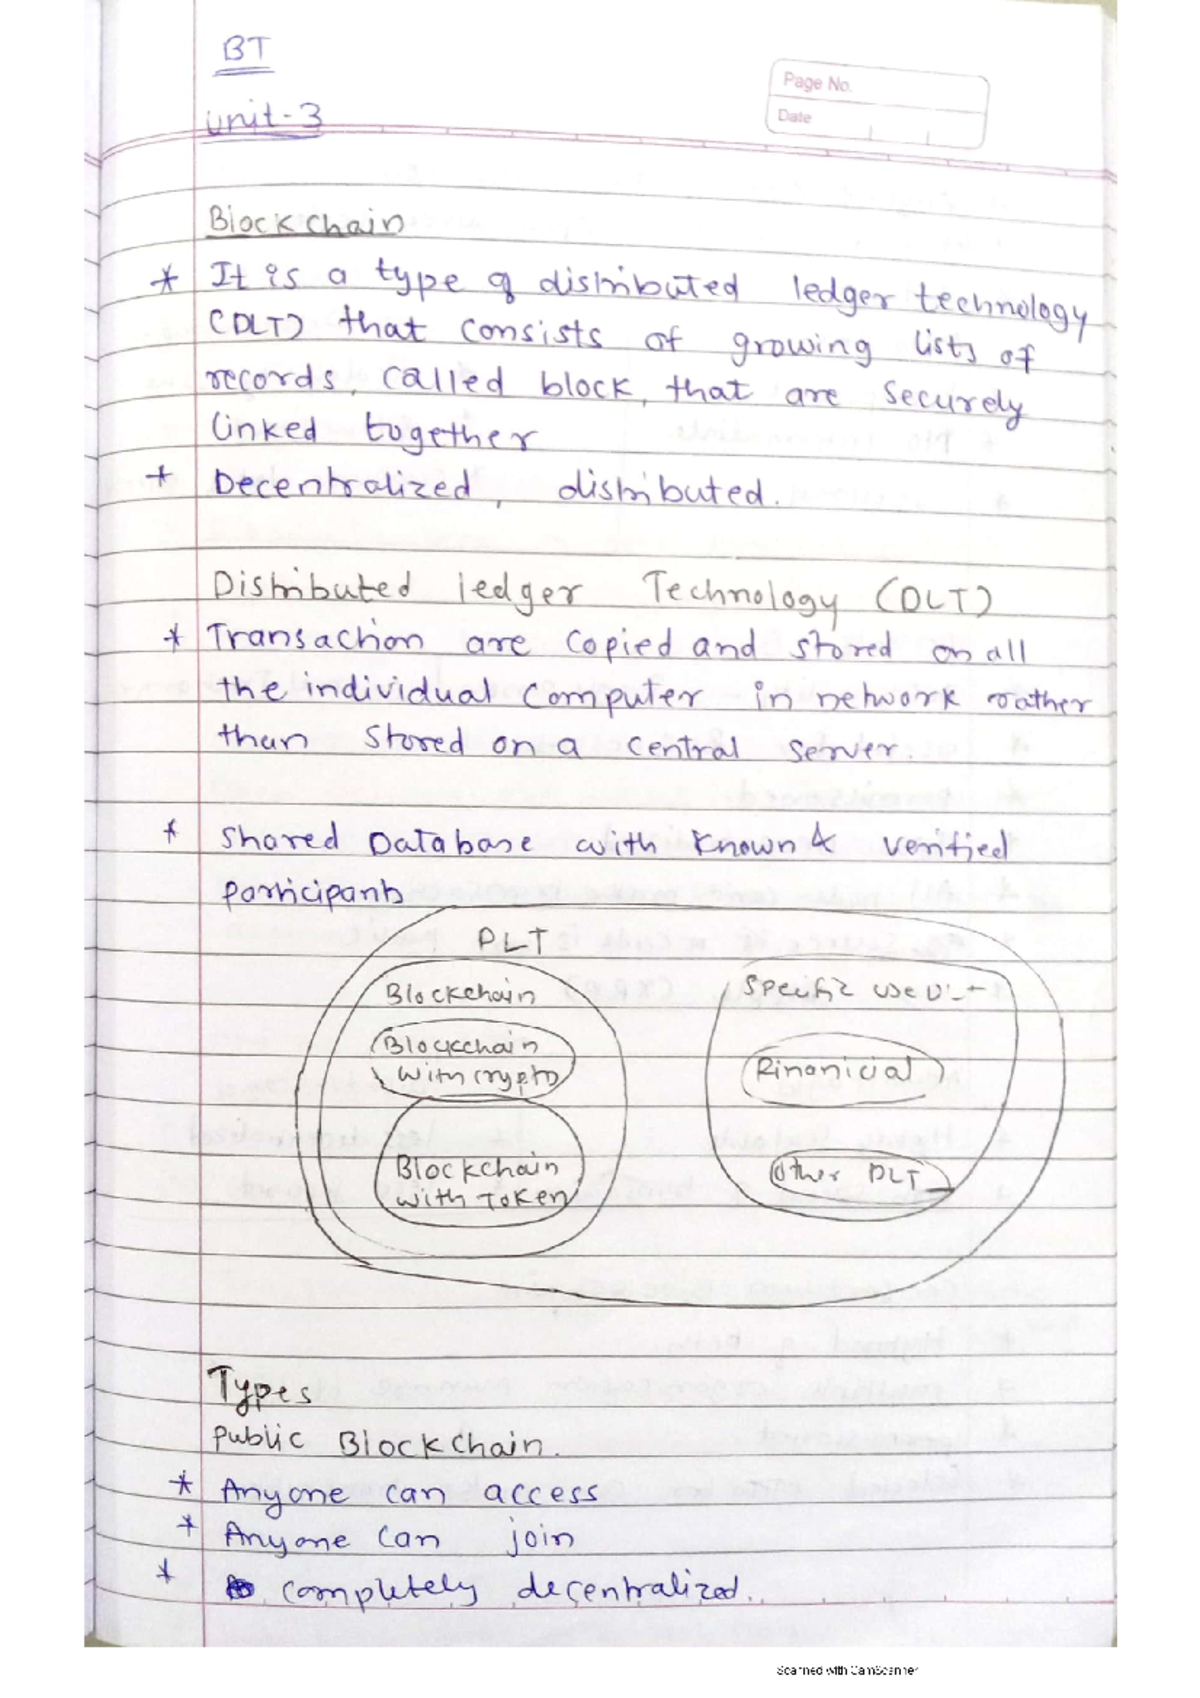 BT
Page No.
Date
Unit-3
Blockchain
* It is a type of distributed ledger technology
(DLT) that consists of growing lists of
records, called block, that are securely
linked together
* Decentralized, distributed.
Distributed ledger Technology (DLT)
* Transaction are copied and stored on all
the individual computer in network rather
than stored on a central server.
* Shared Database with known & verified
participants
DLT
Blockchain
Specific use
Blockchain
with crypto
Finanicial
Blockchain
with Token
Other DLT
Types
public Blockchain.
* Anyone can access
* Anyone can join
* completely decentralized.
Scanned with CamScanner